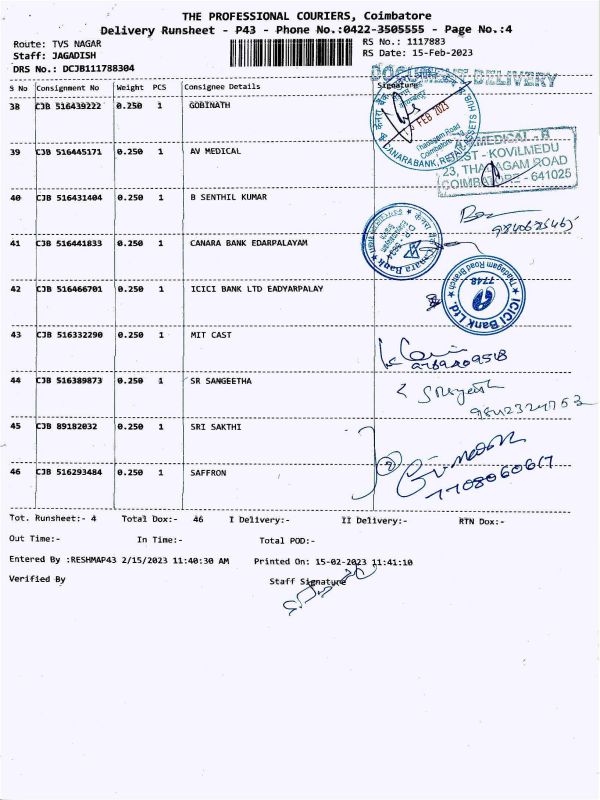 THE PROFESSIONAL COURIERS, Coimbatore
Delivery Runsheet - P43 - Phone No.:0422-3505555 - Page No.:4
Route: TVS NAGAR
RS No.: 1117883
Staff: JAGADISH
RS Date: 15-Feb-2023
DRS No.: DCJB111788304
DOCUMENT DELIVERY
S No Consignment No Weight PCS Consignee Details Signature
38 CJB 516439222 0.250 1 GOBINATH
FEB 2023
Thadagam Road
CANARA BANK, RETAIL ASSETS HUB
39 CJB 516445171 0.250 1 AV MEDICAL
MEDICAL - R
WEST - KOVILMEDU
23, THADAGAM ROAD
COIMBATORE - 641025
40 CJB 516431404 0.250 1 B SENTHIL KUMAR
41 CJB 516441833 0.250 1 CANARA BANK EDARPALAYAM
Canara Bank
42 CJB 516466701 0.250 1 ICICI BANK LTD EADYARPALAY
Thadagam Road Branch
7748
ICICI Bank Ltd.
43 CJB 516332290 0.250 1 MIT CAST
44 CJB 516389873 0.250 1 SR SANGEETHA
45 CJB 89182032 0.250 1 SRI SAKTHI
46 CJB 516293484 0.250 1 SAFFRON
7708060617
Tot. Runsheet:- 4 Total Dox:- 46 I Delivery:- II Delivery:- RTN Dox:-
Out Time:- In Time:- Total POD:-
Entered By :RESHMAP43 2/15/2023 11:40:30 AM Printed On: 15-02-2023 11:41:10
Verified By Staff Signature